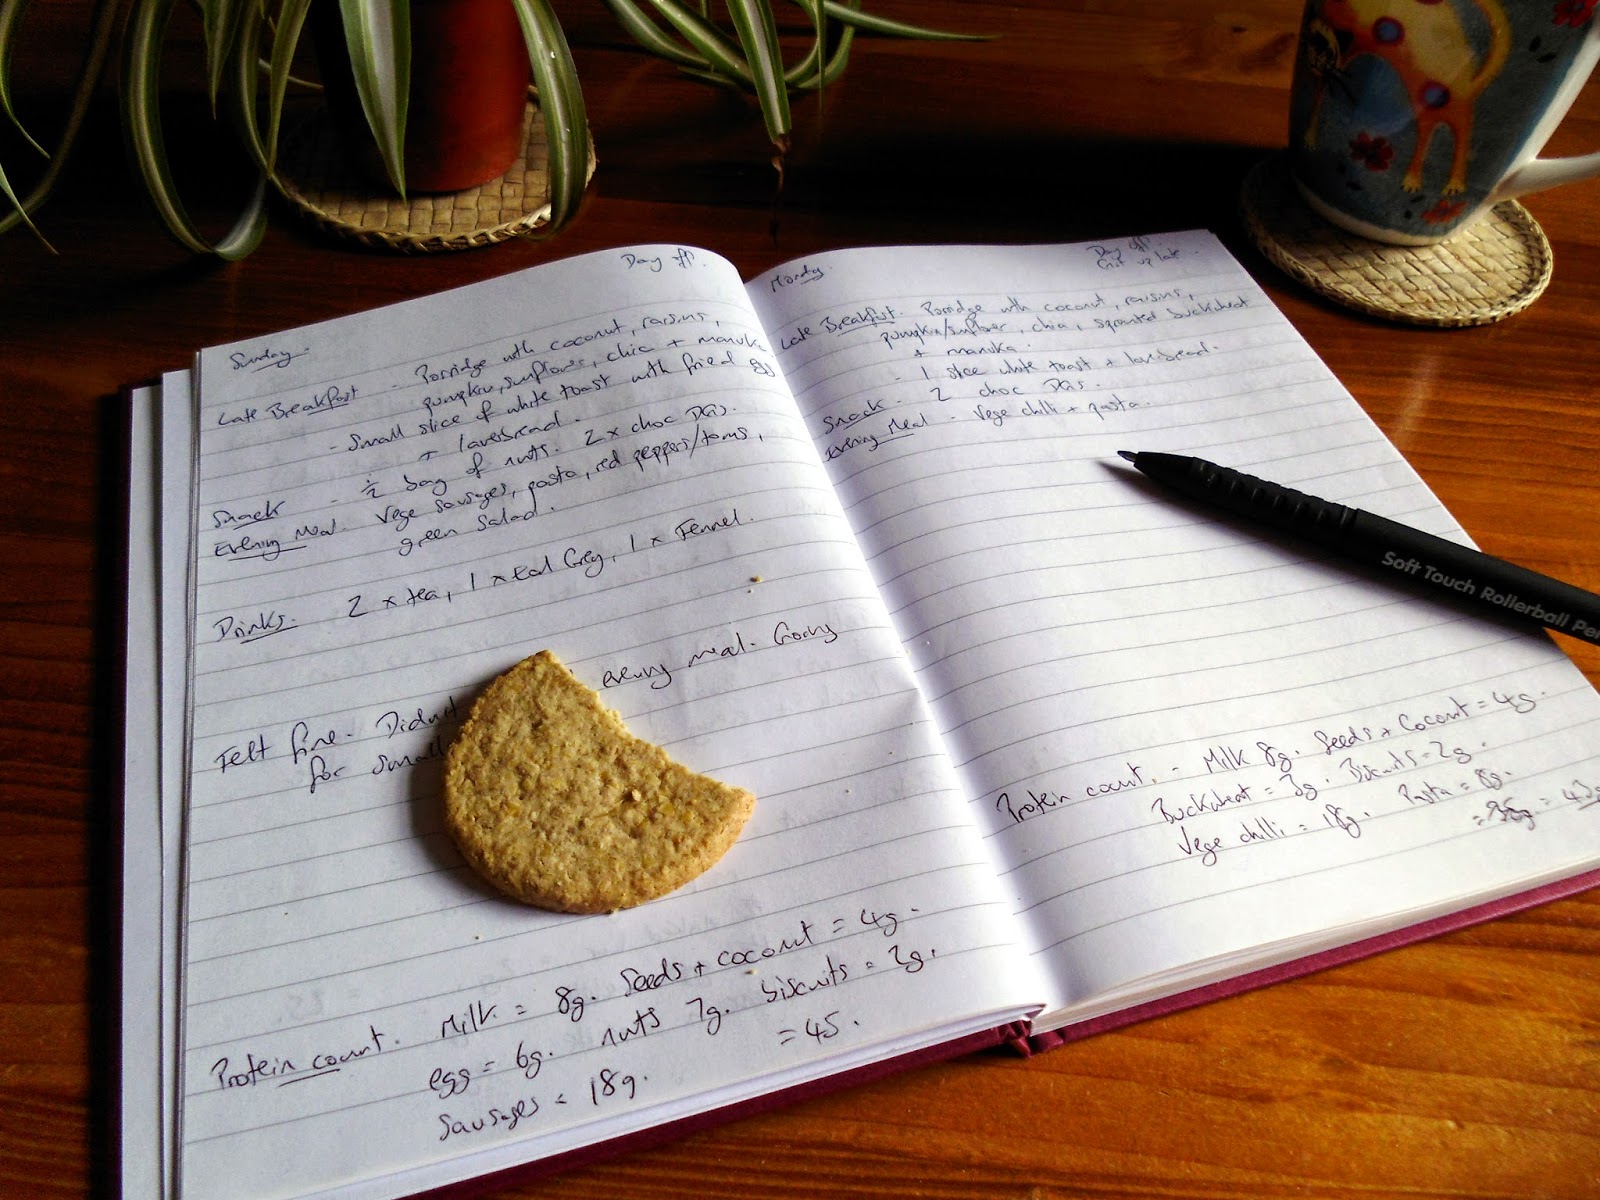 Day off.
Sunday.
Late Breakfast - Porridge with coconut, raisins,
pumpkin, sunflower, chia + manuka
- Small slice of white toast with fried egg
+ laverbread.
Snack - ½ bag of nuts. 2 x choc DGs.
Evening Meal. Vege Sausages, pasta, red peppers/toms,
green salad.
Drinks. 2 x tea, 1 x Earl Grey, 1 x Fennel.
Felt fine. Didn't evening meal. Going
for small
Protein count. Milk = 8g. Seeds + coconut = 4g.
egg = 6g. nuts 7g. biscuits = 2g.
Sausages = 18g. = 45.
Monday.
Day off.
Got up late.
Late Breakfast. Porridge with coconut, raisins,
pumpkin/sunflower, chia, sprouted buckwheat
+ manuka.
- 1 slice white toast + laverbread.
Snack - 2 choc DGs.
Evening Meal - Vege chilli + pasta.
Protein count. - Milk 8g. Seeds + Coconut = 4g.
Buckwheat = 3g. Biscuits = 2g.
Vege chilli = 18g. Pasta = 8g.
= 43g
Soft Touch Rollerball Pen